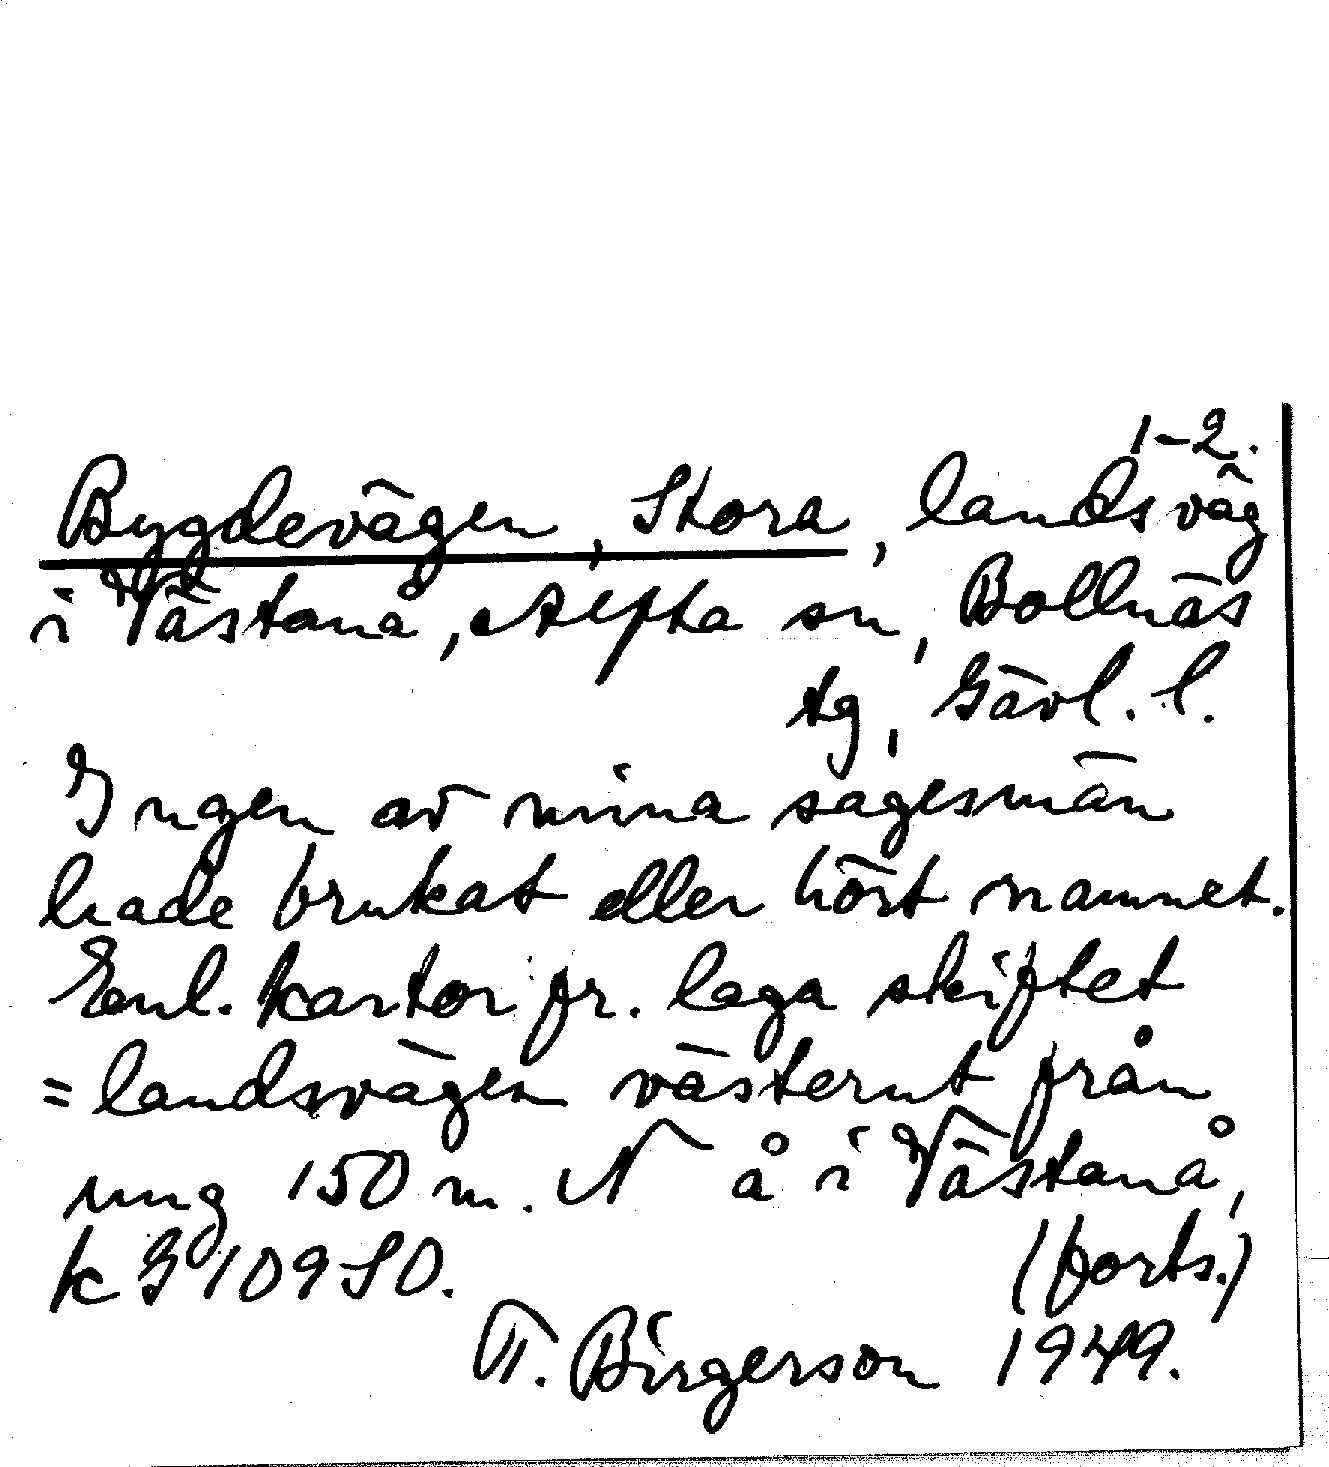 1-2.
Bygdevägen, Stora, landsväg
i Västanå, Alfta sn, Bollnäs
tg, Gävl. l.
Ingen av mina sagesmän
hade brukat eller hört namnet.
Enl. kartor fr. laga skiftet
= landsvägen västerut från
ung 150 m. N å i Västanå,
k G 109 SO. (forts.)
T. Birgerson 1949.